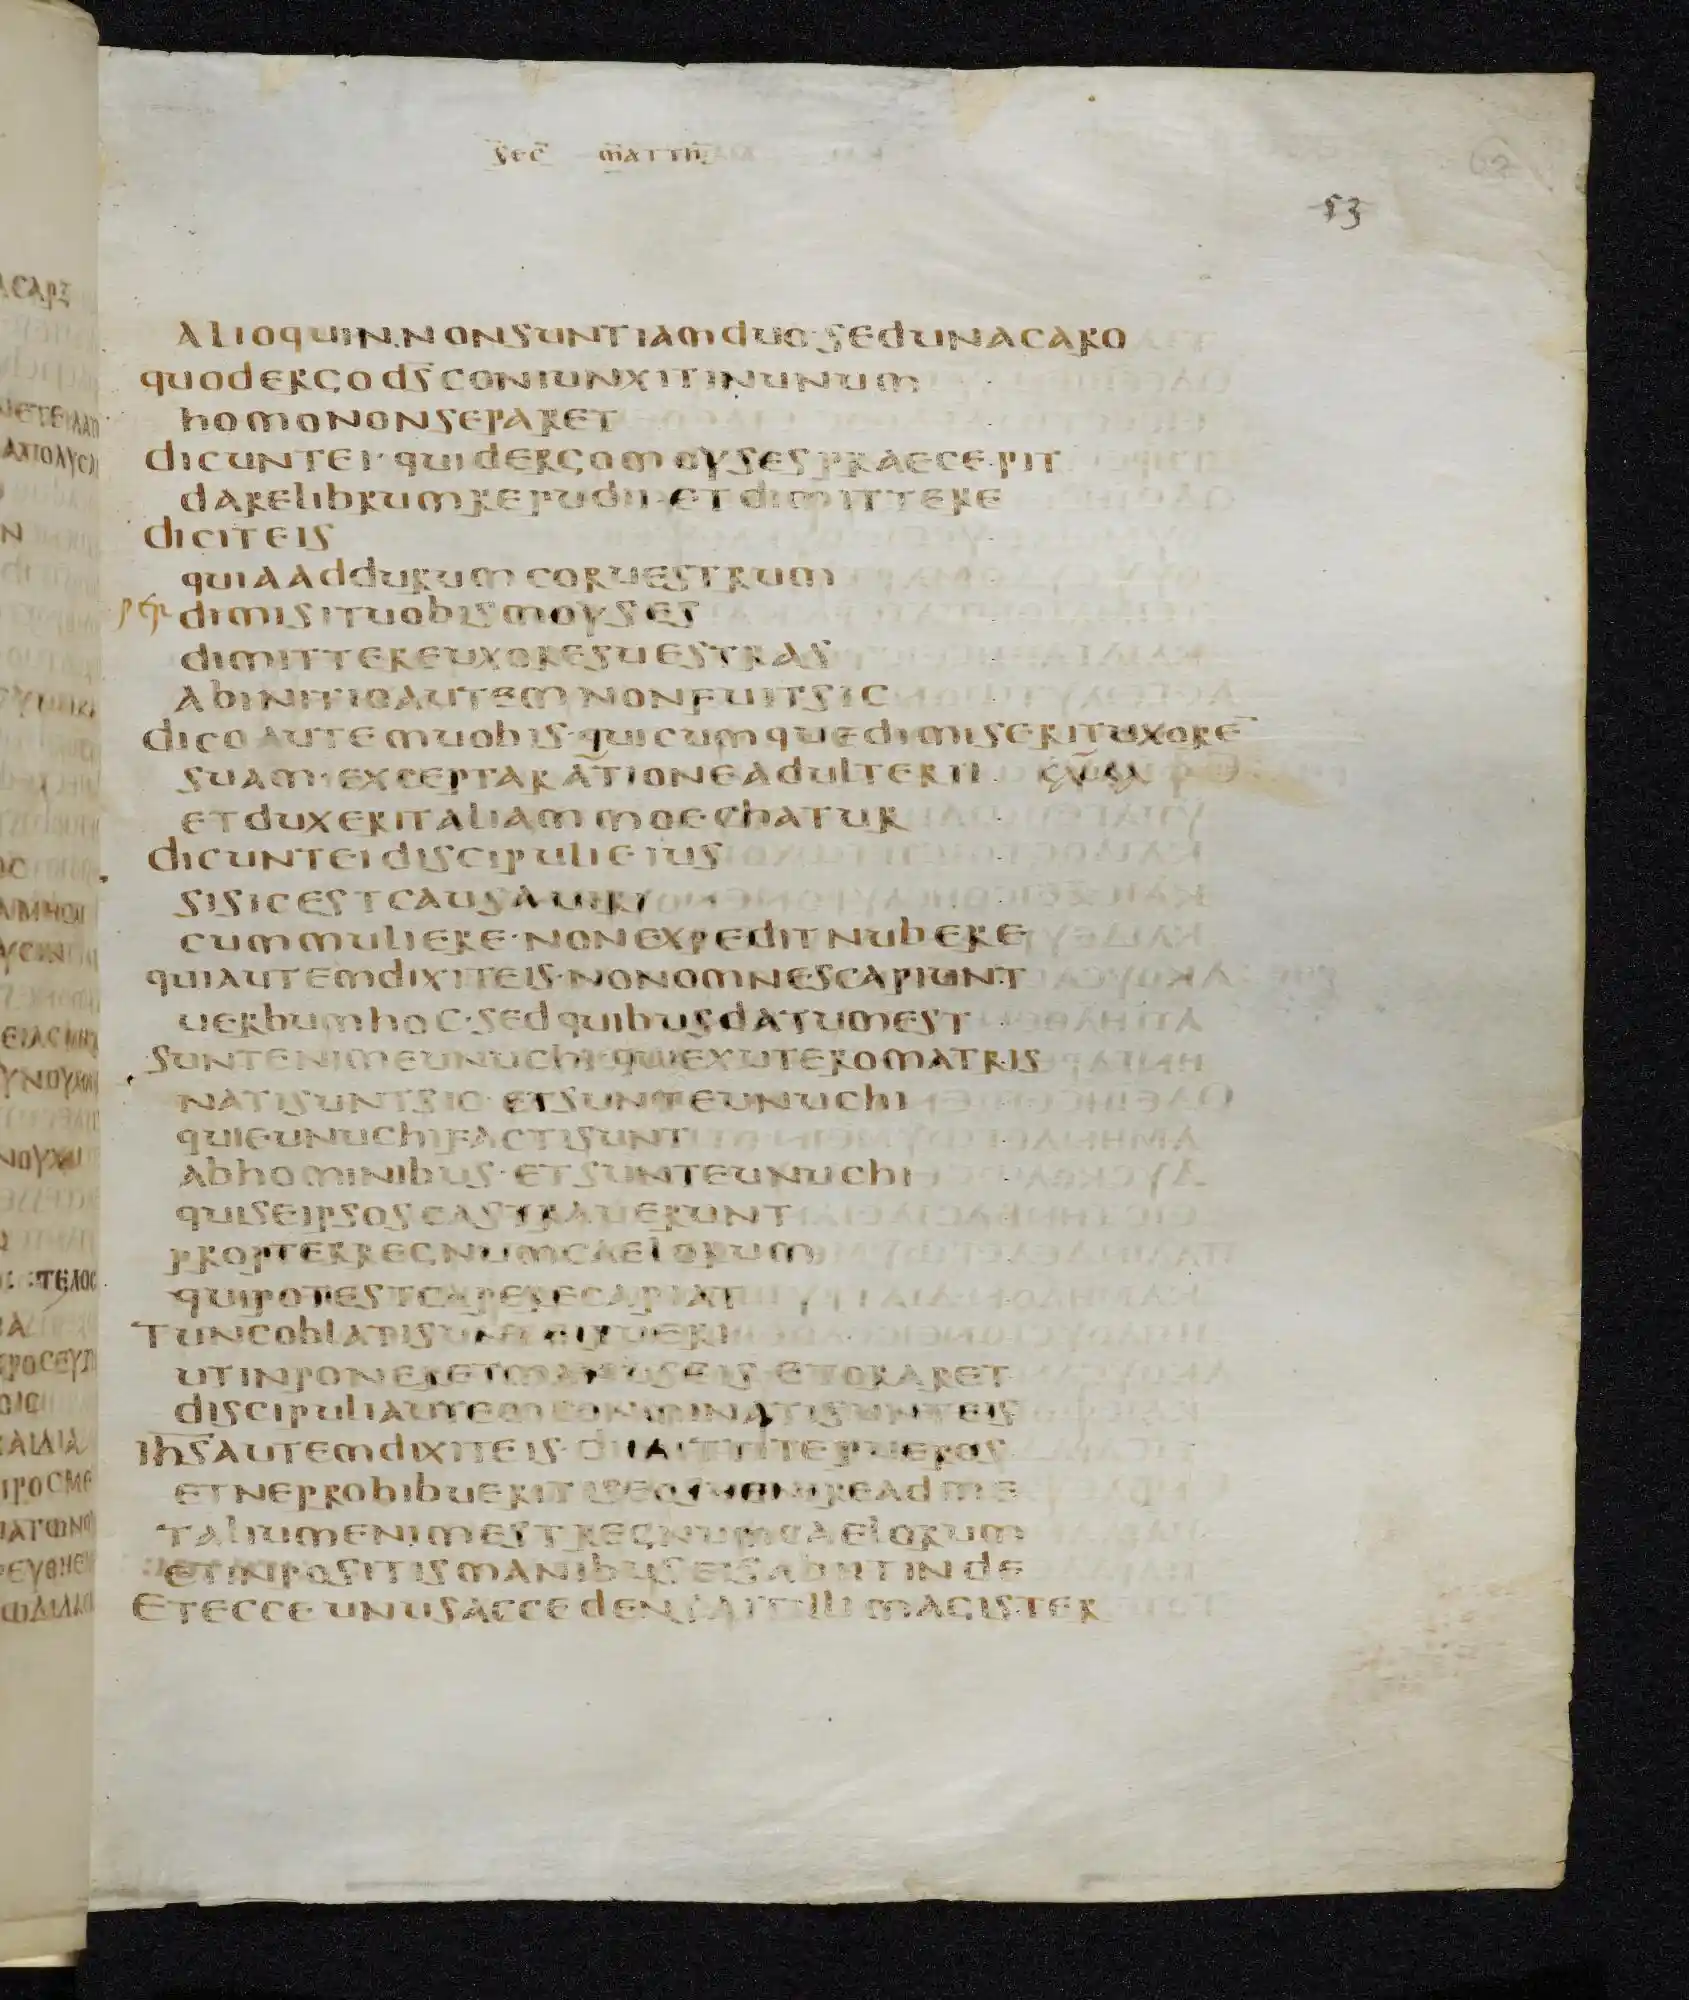 sec matth
53
alioquin non sunt iam duo · sed una caro
quod ergo ds coniunxit in unum
homo non separet
dicunt ei · quid ergo moyses praecepit
dare librum repudii · et dimittere
dicit eis
quia ad durum cor uestrum
dimisit uobis moyses
dimittere uxores uestras
ab initio autem non fuit sic
dico autem uobis · quicumque dimiserit uxore
suam · excepta ratione adulterii
et duxerit aliam moechatur
dicunt ei discipuli eius
si sic est causa uiri
cum muliere · non expedit nubere
qui autem dixit eis · non omnes capiunt
uerbum hoc · sed quibus datum est
sunt enim eunuchi · qui ex utero matris
nati sunt sic · et sunt eunuchi
qui eunuchi facti sunt
ab hominibus · et sunt eunuchi
qui se ipsos castrauerunt
propter regnum caelorum
qui potest capere capiat
tunc oblati sunt ei pueri
ut inponeret manus eis et oraret
discipuli autem conminati sunt eis
ihs autem dixit eis · pueros
et ne prohibueritis eos uenire ad me
talium enim est regnum caelorum
et inpositis manibus eis abiit inde
et ecce unus accedens ait illi magister